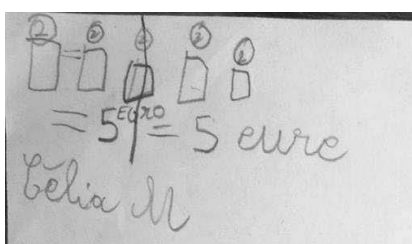 2 = 2 2 2 2
= 5 EURO = 5 eure
Célia M